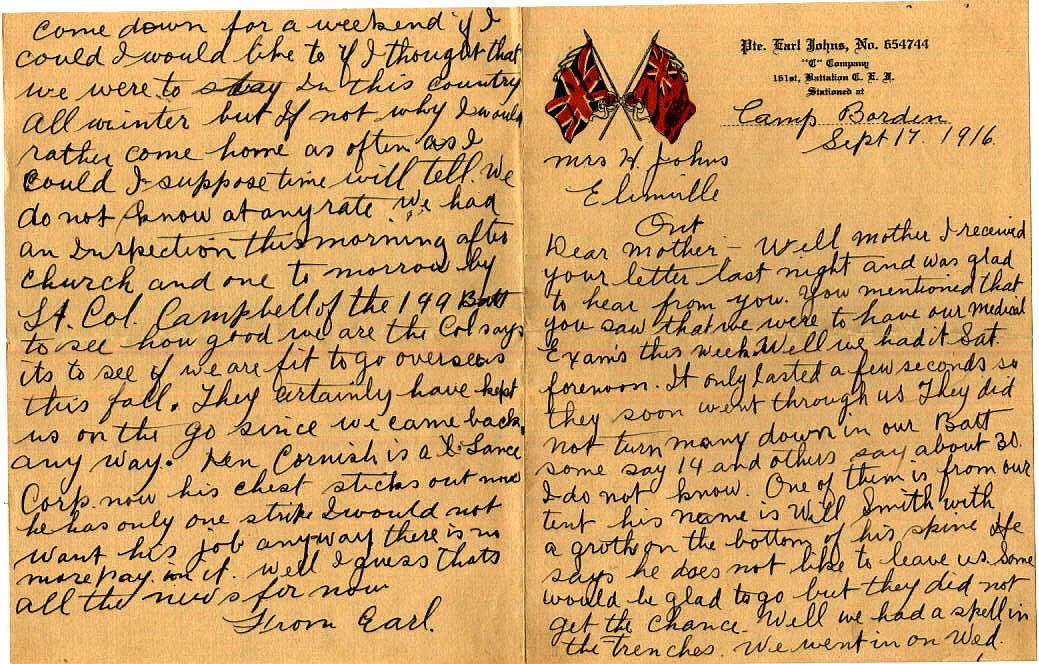 Pte. Earl Johns, No. 654744
"C" Company
161st, Battalion C. E. F.
Stationed at
Camp Borden
Sept 17. 1916.
Mrs H. Johns
Elimville
Ont
Dear Mother - Well Mother I received
your letter last night and was glad
to hear from you. You mentioned that
you saw that we were to have our Medical
Exams this week. Well we had it Sat.
forenoon. It only lasted a few seconds so
they soon went through us They did
not turn many down in our Batt
some say 14 and others say about 30.
I do not know. One of them is from our
tent his name is Will Smith with
a groth on the bottom of his spine He
says he does not like to leave us. Some
would be glad to go but they did not
get the chance. Well we had a spell in
the trenches. We went in on Wed.
come down for a weekend if I
could I would like to if I thought that
we were to stay In this country
All winter but If not why I would
rather come home as often as I
could I suppose time will tell. We
do not know at any rate. We had
an Inspection this morning after
church and one to morrow by
Lt. Col. Campbell of the 149 Batt
to see how good we are the Col says
its to see if we are fit to go overseas
this fall. They certainly have kept
us on the go since we came back
any way. Len Cornish is a Lance
Corp now his chest sticks out now
he has only one stripe I would not
want his job anyway there is no
more pay in it. Well I guess thats
all the news for now
From Earl.